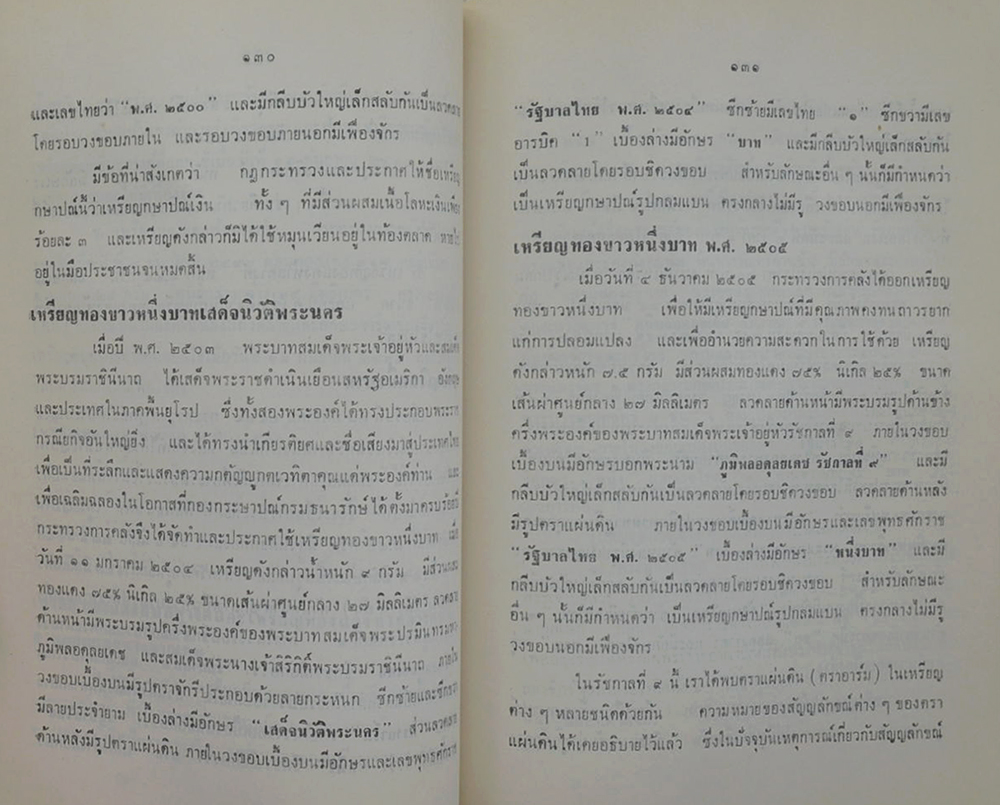 ๑๓๐
และเลขไทยว่า "พ.ศ. ๒๕๐๐" และมีกลีบบัวใหญ่เล็กสลับกันเป็นลวดลาย
โดยรอบวงขอบภายใน และรอบวงขอบภายนอกมีเฟืองจักร
มีข้อที่น่าสังเกตว่า กฎกระทรวงและประกาศให้ชื่อเหรียญ
กษาปณ์นี้ว่าเหรียญกษาปณ์เงิน ทั้ง ๆ ที่มีส่วนผสมเนื้อโลหะเงินเพียง
ร้อยละ ๓ และเหรียญดังกล่าวก็มิได้ใช้หมุนเวียนอยู่ในท้องตลาด
อยู่ในมือประชาชนจนหมดสิ้น
เหรียญทองขาวหนึ่งบาทเสด็จนิวัติพระนคร
เมื่อปี พ.ศ. ๒๕๐๓ พระบาทสมเด็จพระเจ้าอยู่หัวและสมเด็จ
พระบรมราชินีนาถ ได้เสด็จพระราชดำเนินเยือนสหรัฐอเมริกา อังกฤษ
และประเทศในภาคพื้นยุโรป ซึ่งทั้งสองพระองค์ได้ทรงประกอบพระราช
กรณียกิจอันใหญ่ยิ่ง และได้ทรงนำเกียรติยศและชื่อเสียงมาสู่ประเทศไทย
เพื่อเป็นที่ระลึกและแสดงความกตัญญูกตเวทิตาคุณแด่พระองค์ท่าน และ
เพื่อเฉลิมฉลองในโอกาสที่กองกระษาปณ์กรมธนารักษ์ได้ตั้งมาครบร้อยปี
กระทรวงการคลังจึงได้จัดทำและประกาศใช้เหรียญทองขาวหนึ่งบาท เมื่อ
วันที่ ๑๑ มกราคม ๒๕๐๔ เหรียญดังกล่าวน้ำหนัก ๙ กรัม มีส่วนผสม
ทองแดง ๗๕% นิเกิล ๒๕% ขนาดเส้นผ่าศูนย์กลาง ๒๗ มิลลิเมตร ลวดลาย
ด้านหน้ามีพระบรมรูปครึ่งพระองค์ของพระบาทสมเด็จพระปรมินทรมหา
ภูมิพลอดุลยเดช และสมเด็จพระนางเจ้าสิริกิติ์พระบรมราชินีนาถ ภายใน
วงขอบเบื้องบนมีรูปตราจักรีประกอบด้วยลายกระหนก ซีกซ้ายและซีกขวา
มีลายประจำยาม เบื้องล่างมีอักษร "เสด็จนิวัติพระนคร" ส่วนลวดลาย
ด้านหลังมีรูปตราแผ่นดิน ภายในวงขอบเบื้องบนมีอักษรและเลขพุทธศักราช
๑๓๑
"รัฐบาลไทย พ.ศ. ๒๕๐๔" ซีกซ้ายมีเลขไทย "๑" ซีกขวามีเลข
อารบิค "1" เบื้องล่างมีอักษร "บาท" และมีกลีบบัวใหญ่เล็กสลับกัน
เป็นลวดลายโดยรอบชิดวงขอบ สำหรับลักษณะอื่น ๆ นั้นก็มีกำหนดว่า
เป็นเหรียญกษาปณ์รูปกลมแบน ตรงกลางไม่มีรู วงขอบนอกมีเฟืองจักร
เหรียญทองขาวหนึ่งบาท พ.ศ. ๒๕๐๕
เมื่อวันที่ ๔ ธันวาคม ๒๕๐๕ กระทรวงการคลังได้ออกเหรียญ
ทองขาวหนึ่งบาท เพื่อให้มีเหรียญกษาปณ์ที่มีคุณภาพคงทนถาวรยาก
แก่การปลอมแปลง และเพื่ออำนวยความสะดวกในการใช้ด้วย เหรียญ
ดังกล่าวหนัก ๗.๕ กรัม มีส่วนผสมทองแดง ๗๕% นิเกิล ๒๕% ขนาด
เส้นผ่าศูนย์กลาง ๒๗ มิลลิเมตร ลวดลายด้านหน้ามีพระบรมรูปด้านข้าง
ครึ่งพระองค์ของพระบาทสมเด็จพระเจ้าอยู่หัวรัชกาลที่ ๙ ภายในวงขอบ
เบื้องบนมีอักษรบอกพระนาม "ภูมิพลอดุลยเดช รัชกาลที่ ๙" และมี
กลีบบัวใหญ่เล็กสลับกันเป็นลวดลายโดยรอบชิดวงขอบ ลวดลายด้านหลัง
มีรูปตราแผ่นดิน ภายในวงขอบเบื้องบนมีอักษรและเลขพุทธศักราช
"รัฐบาลไทย พ.ศ. ๒๕๐๕" เบื้องล่างมีอักษร "หนึ่งบาท" และมี
กลีบบัวใหญ่เล็กสลับกันเป็นลวดลายโดยรอบชิดวงขอบ สำหรับลักษณะ
อื่น ๆ นั้นก็มีกำหนดว่า เป็นเหรียญกษาปณ์รูปกลมแบน ตรงกลางไม่มีรู
วงขอบนอกมีเฟืองจักร
ในรัชกาลที่ ๙ นี้ เราได้พบตราแผ่นดิน (ตราอาร์ม) ในเหรียญ
ต่าง ๆ หลายชนิดด้วยกัน ความหมายของสัญญลักษณ์ต่าง ๆ ของตรา
แผ่นดินได้เคยอธิบายไว้แล้ว ซึ่งในปัจจุบันเหตุการณ์เกี่ยวกับสัญญลักษณ์